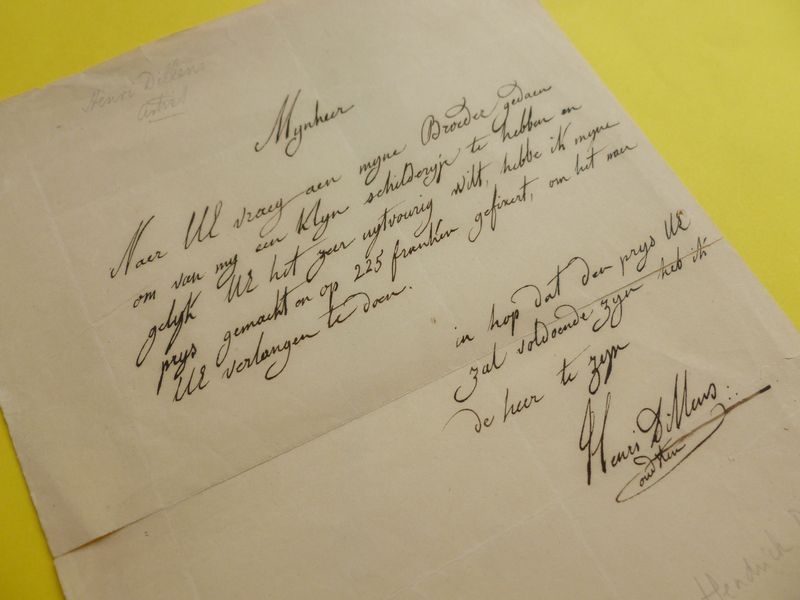 Henri Dillens
Mynheer
Naer UE vraeg aen myne Broeder gedaen
om van my een klyn schilderije te hebben en
gelyk UE het zeer uytvourig wilt, hebbe ik myne
prys gemackt en op 225 franken gefixert, om het naer
UE verlangen te doen.
in hop dat den prys UE
zal voldoende zyn heb ik
de heer te zyn
Henri Dillens
Hendrick